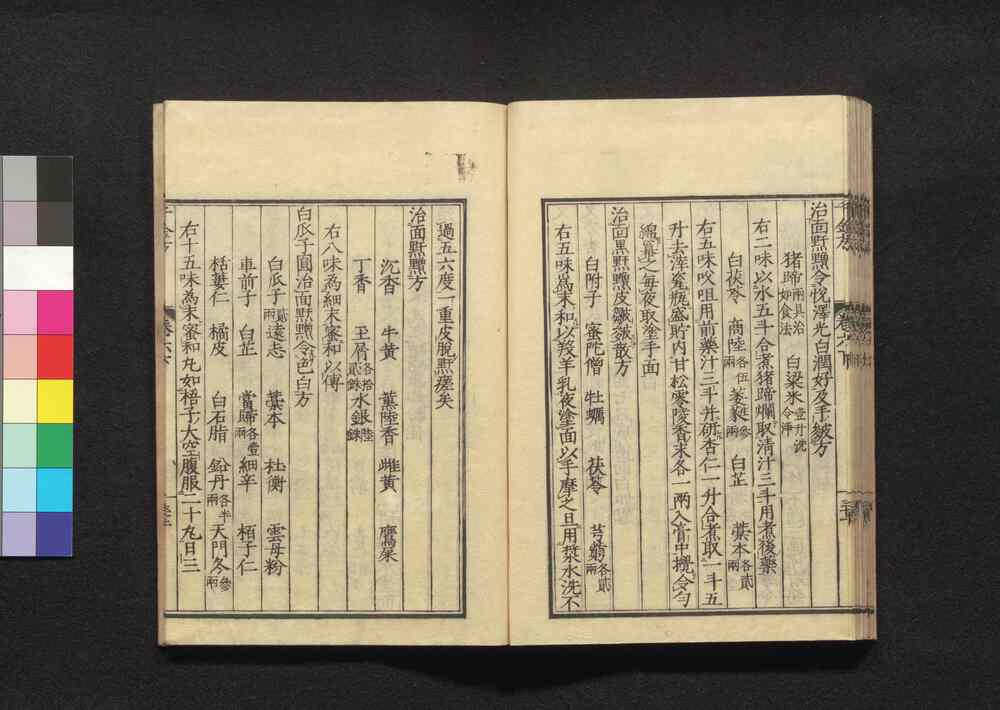 治面䵟䵳令悅澤光白潤好及手皴方
猪蹄兩具治如食法 白粱米壹升洗令淨
右二味以水五斗合煮猪蹄爛取清汁三斗用煮後藥
白茯苓 商陸各伍兩 萎蕤參兩 白芷 藁本各貳兩
右五味㕮咀用前藥汁三斗并研杏仁一升合煮取一斗五
升去滓瓷瓶盛貯內甘松零陵香末各一兩入膏中攪令勻
綿冪之每夜取塗手面
治面黑䵟䵳皮皺皴散方
白附子 蜜陀僧 牡蠣 茯苓 芎藭各貳兩
右五味為末和以羖羊乳夜塗面以手摩之旦用漿水洗不
過五六度一重皮脫䵟瘥矣
治面䵟䵳方
沉香 牛黃 薰陸香 雌黃 鷹屎
丁香 玉屑各拾貳銖 水銀陸銖
右八味為細末蜜和以傅
白瓜子圓治面䵟䵳令色白方
白瓜子貳兩 遠志 藁本 杜衡 雲母粉
車前子 白芷 當歸各壹兩 細辛 栢子仁
栝蔞仁 橘皮 白石脂 鉛丹各半兩 天門冬參兩
右十五味為末蜜和丸如梧子大空腹服二十丸日三